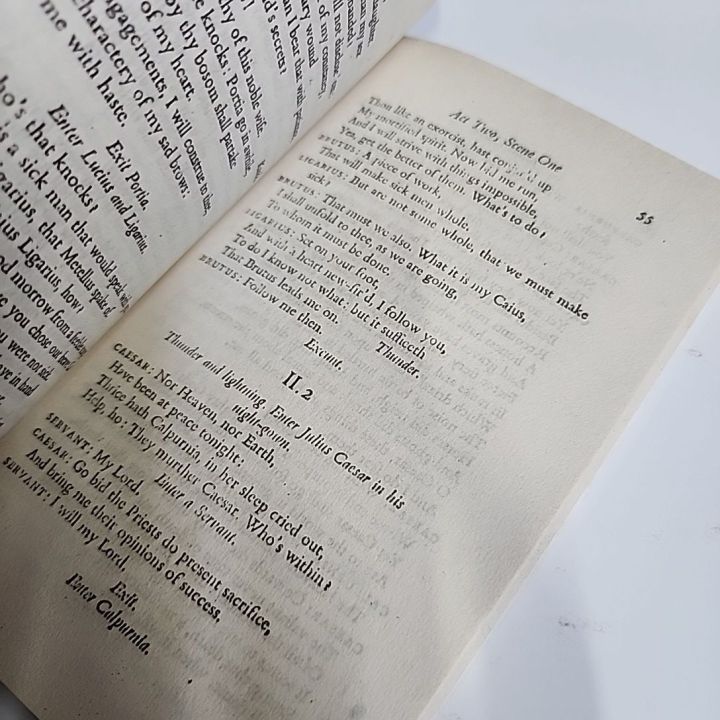 daughter
secrets?
can I bear that with patience,
worthy of this noble wife.
knocks: Portia go in awhile,
by thy bosom shall partake
of my heart.
engagements, I will construe to thee,
charactery of my sad brows:
me with haste.
Exit Portia.
Enter Lucius and Ligarius.
who's that knocks?
's a sick man that would speak with
Ligarius, that Metellus spake of.
Caius Ligarius, how?
good morrow from a feeble
you chose out brave
you were not sick.
have in hand
Act Two, Scene One
55
Thou like an exorcist, hast conjur'd up
My mortified spirit. Now bid me run,
And I will strive with things impossible,
Yea, get the better of them. What's to do?
BRUTUS: A piece of work,
That will make sick men whole.
LIGARIUS: But are not some whole, that we must make
sick?
BRUTUS: That must we also. What it is my Caius,
I shall unfold to thee, as we are going,
To whom it must be done.
LIGARIUS: Set on your foot,
And with a heart new-fir'd, I follow you,
To do I know not what: but it sufficeth
That Brutus leads me on. Thunder.
BRUTUS: Follow me then.
Exeunt.
II.2
Thunder and lightning. Enter Julius Caesar in his
night-gown.
CAESAR: Nor Heaven, nor Earth,
Have been at peace tonight:
Thrice hath Calpurnia, in her sleep cried out,
Help, ho: They murther Caesar. Who's within?
Enter a Servant.
SERVANT: My Lord.
CAESAR: Go bid the Priests do present sacrifice,
And bring me their opinions of success.
SERVANT: I will my Lord,
Exit.
Enter Calpurnia.